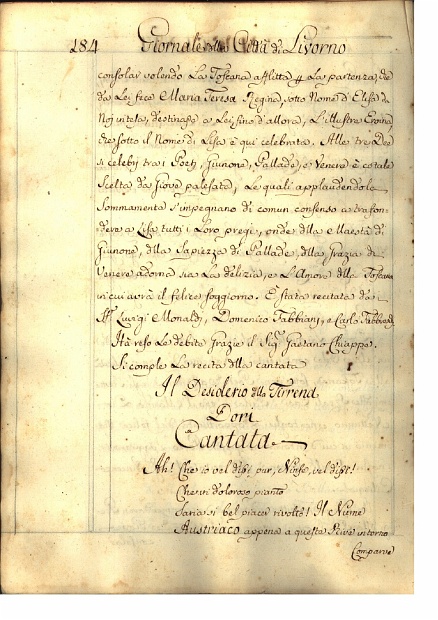 184 Giornale della Città di Livorno
consolar volendo La Toscana afflitta La partenza, che
da Lei fece Maria Teresa Regina, sotto Nome d'Elisa da
Noi intesa, destinasse a Lei fino d'allora, L'illustre Eroina
che sotto il Nome di Lisa è qui celebrata. Alle tre Dee
sì celebri tra i Poeti, Giunone, Pallade, e Venere è cotale
Scelta da Giove palesata, Le quali applaudendola
Sommamente s'impegnano di comun consenso a trasfon-
dere a Lisa tutti i Loro pregi, onde della Maestà di
Giunone, della Sapiezza di Pallade, della Grazia di
Venere adorna sia La delizia, e L'Amore della Toscana
in cui avrà il felice soggiorno. È stata recitata da
SS.ri Luigi Monaldi, Domenico Fabbiani, e Carlo Fabbiani
Hà reso Le debite Grazie il Sig.r Gaetano Chiappe.
Si compie La recita dalla cantata
Il Desiderio della Tirrena
Dori
Cantata
Ah! Che io vel dissi pur, Ninfe, vel dissi!
Che un doloroso pianto
Sariasi bel piacer rivolto! Il Nume
Austriaco appena a queste Rive intorno
Comparve